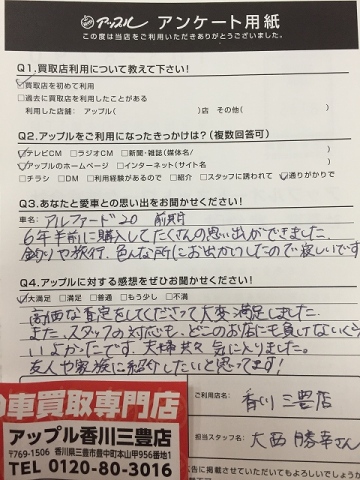 アップル アンケート用紙
この度は当店をご利用いただきありがとうございました。
Q1.買取店利用について教えて下さい!
☑買取店を初めて利用
□過去に買取店を利用したことがある
利用した店舗: アップル( )店 その他( )
Q2.アップルをご利用になったきっかけは?(複数回答可)
☑テレビCM □ラジオCM □新聞・雑誌(媒体名/
☑アップルのホームページ □インターネット(サイト名
□チラシ □DM □利用経験があるので □紹介 □スタッフに誘われて ☑通りがかりで
Q3.あなたと愛車との思い出をお聞かせください!
車名: アルファード20 前期
6年半前に購入してたくさんの思い出ができました
釣りや旅行、色んな所にお出かけしたので寂しいです
Q4.アップルに対する感想をぜひお聞かせください!
☑大満足 □満足 □普通 □もう少し □不満
高価な査定をしてくださって大変満足しました。
また、スタッフの対応も、どこのお店にも負けないくら
いよかったです。夫婦共々気に入りました。
友人や家族に紹介したいと思ってます!
車買取専門店
アップル香川三豊店
〒769-1506 香川県三豊市豊中町本山甲956番地1
TEL 0120-80-3016
ご利用店名:
香川三豊店
担当スタッフ名:
大西勝幸さん
告に掲載させていただいてもよろしいでしょうか